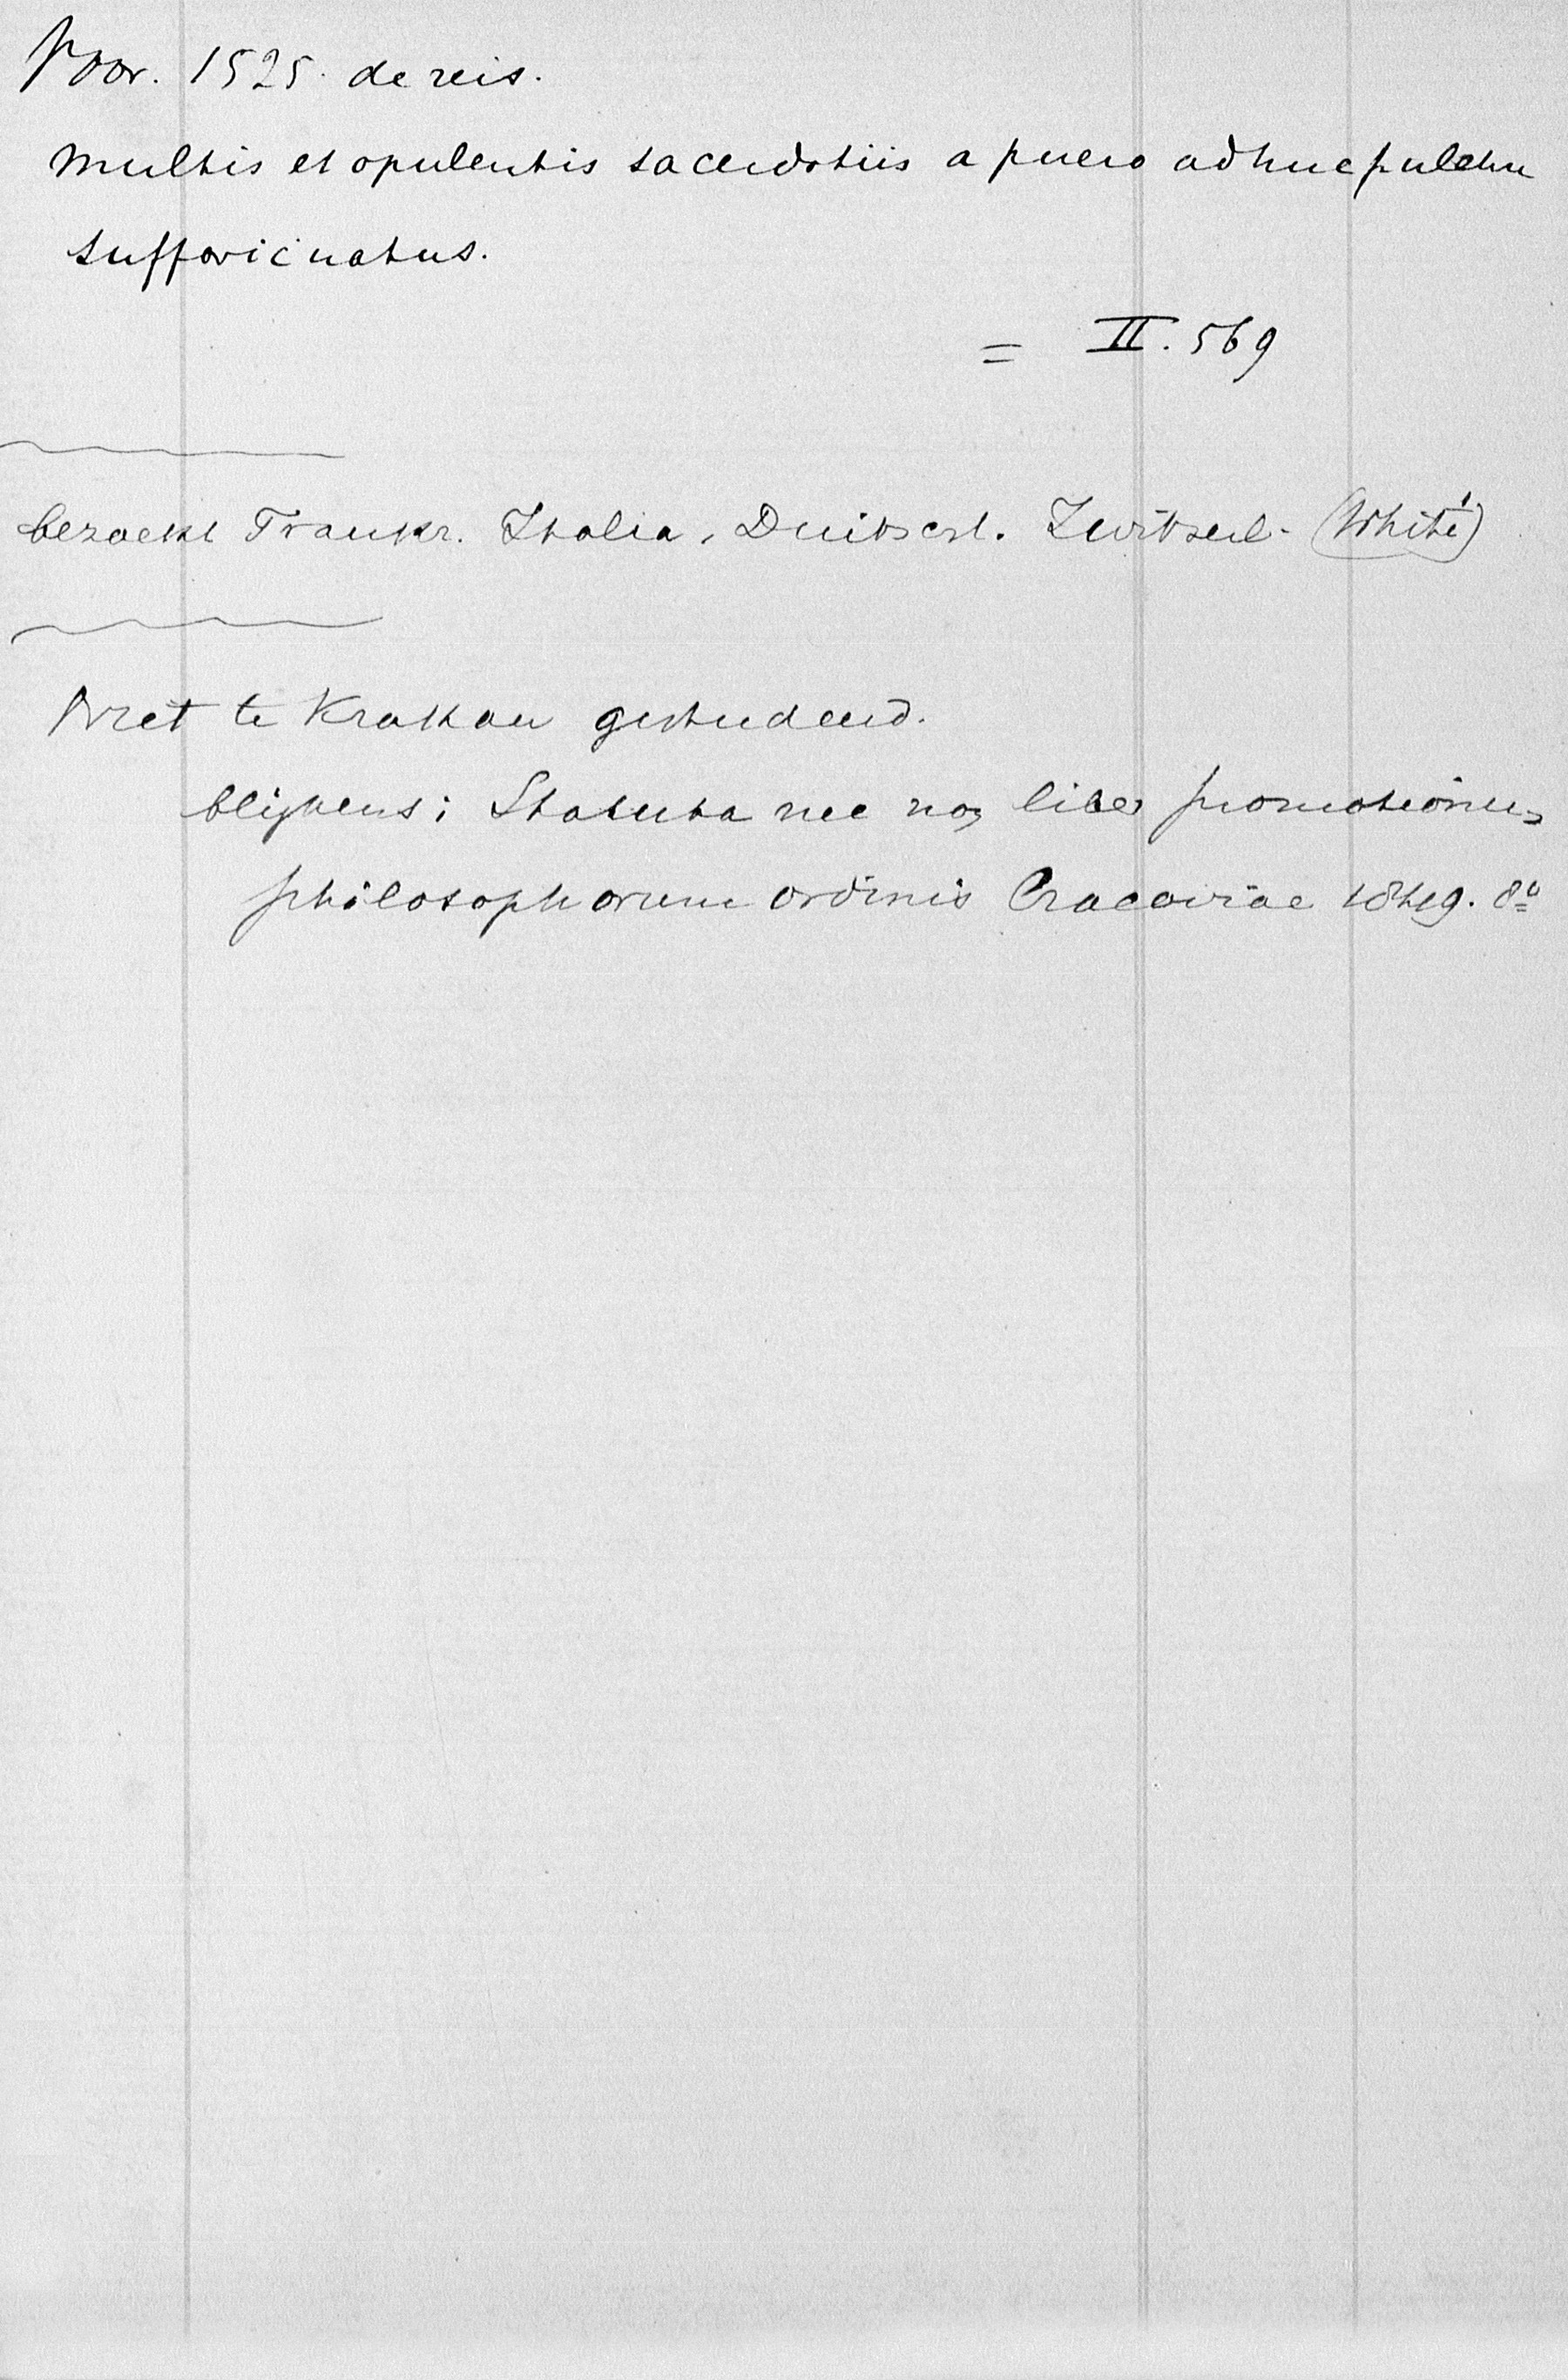 Voor. 1525. de reis.
multis et opulentis sacerdotiis a puero adhuc pulchre
suffarcinatus.
= II. 569
bezoekt Frankr. Italia, Duitscrl. Zwitserl. (White)
Niet te Krakau gestudeerd.
blijkens: Statuta nec non liber promotionum
philosophorum ordinis Cracoviae 1849. 8º